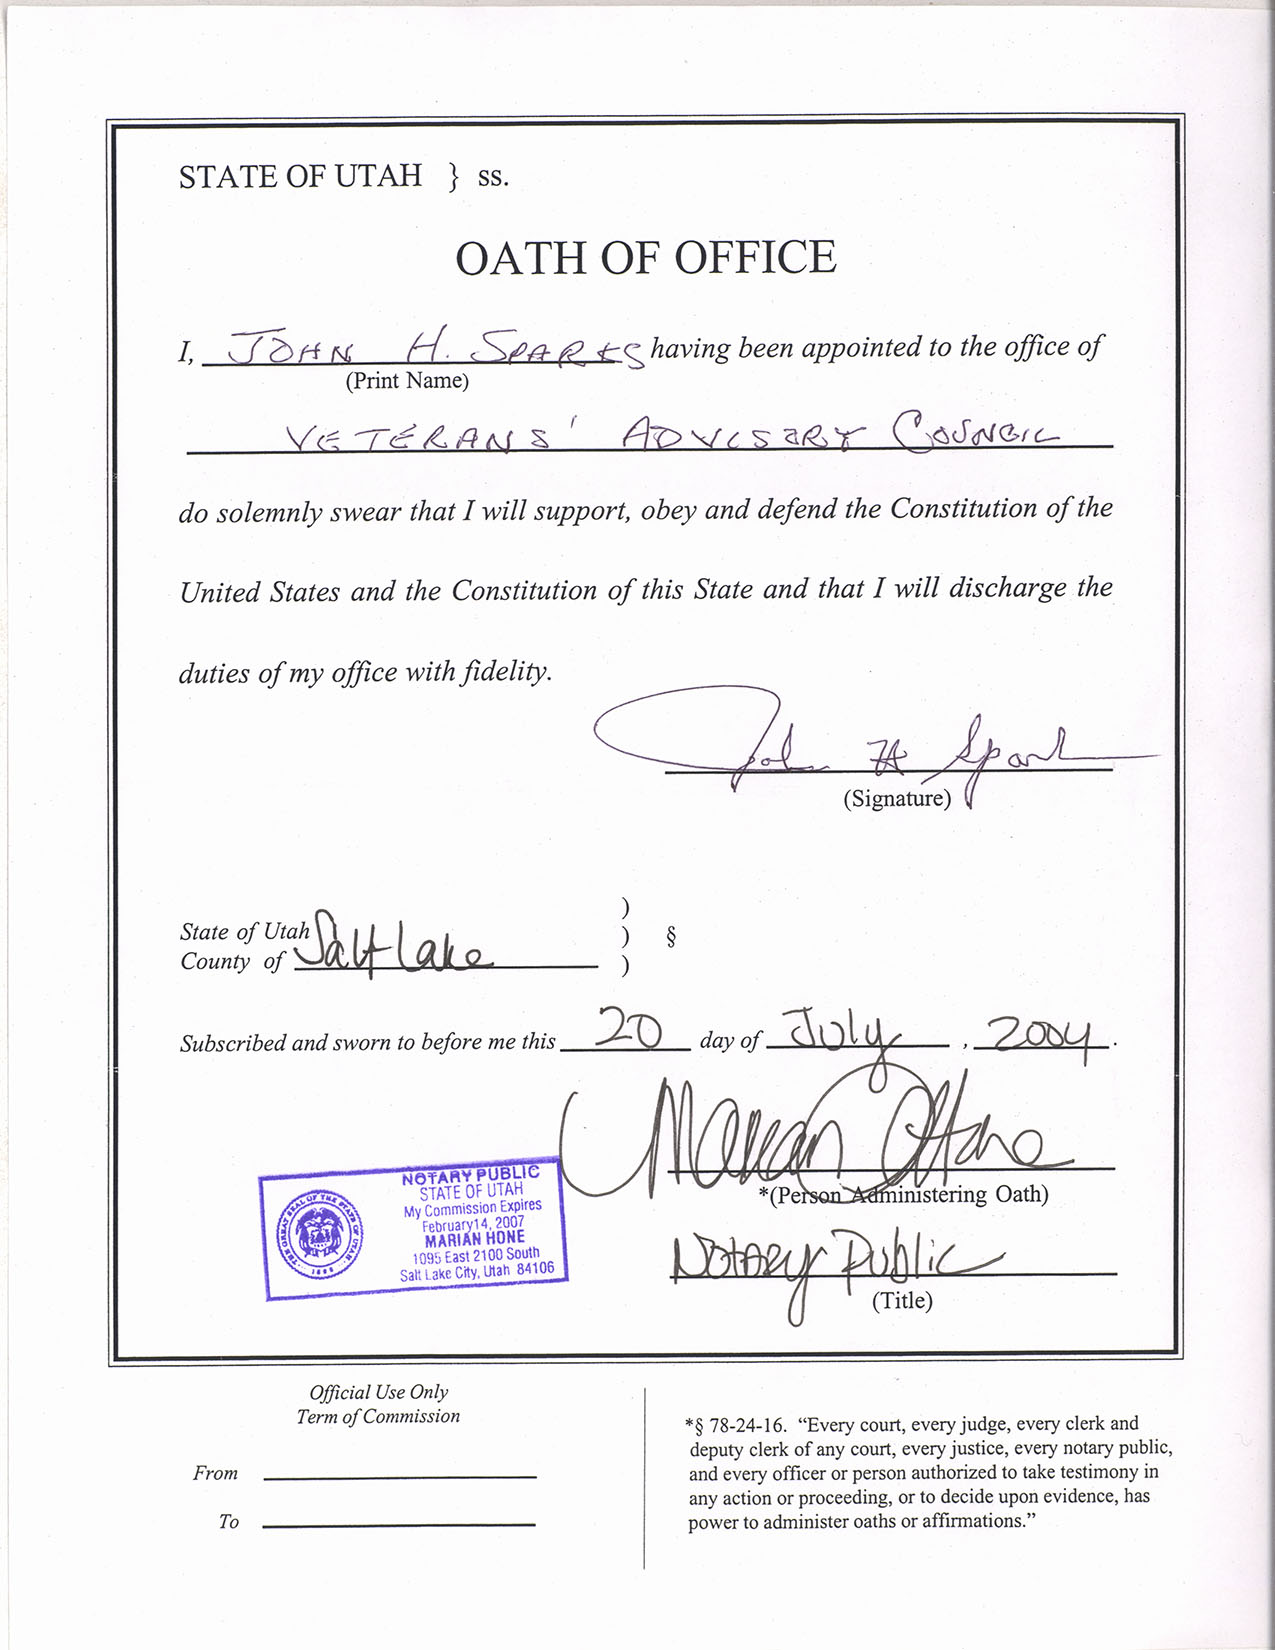 STATE OF UTAH } ss.
OATH OF OFFICE
I, JOHN H. SPARKS having been appointed to the office of
(Print Name)
VETERANS' ADVISORY COUNCIL
do solemnly swear that I will support, obey and defend the Constitution of the
United States and the Constitution of this State and that I will discharge the
duties of my office with fidelity.
John H Spark
(Signature)
)
State of Utah ) §
County of Salt Lake )
Subscribed and sworn to before me this 20 day of July, 2004.
Marian Hone
*(Person Administering Oath)
NOTARY PUBLIC
STATE OF UTAH
My Commission Expires
February 14, 2007
MARIAN HONE
1095 East 2100 South
Salt Lake City, Utah 84106
THE GREAT SEAL OF THE STATE OF UTAH
1896
Notary Public
(Title)
Official Use Only
Term of Commission
From
To
*§ 78-24-16. “Every court, every judge, every clerk and
deputy clerk of any court, every justice, every notary public,
and every officer or person authorized to take testimony in
any action or proceeding, or to decide upon evidence, has
power to administer oaths or affirmations.”